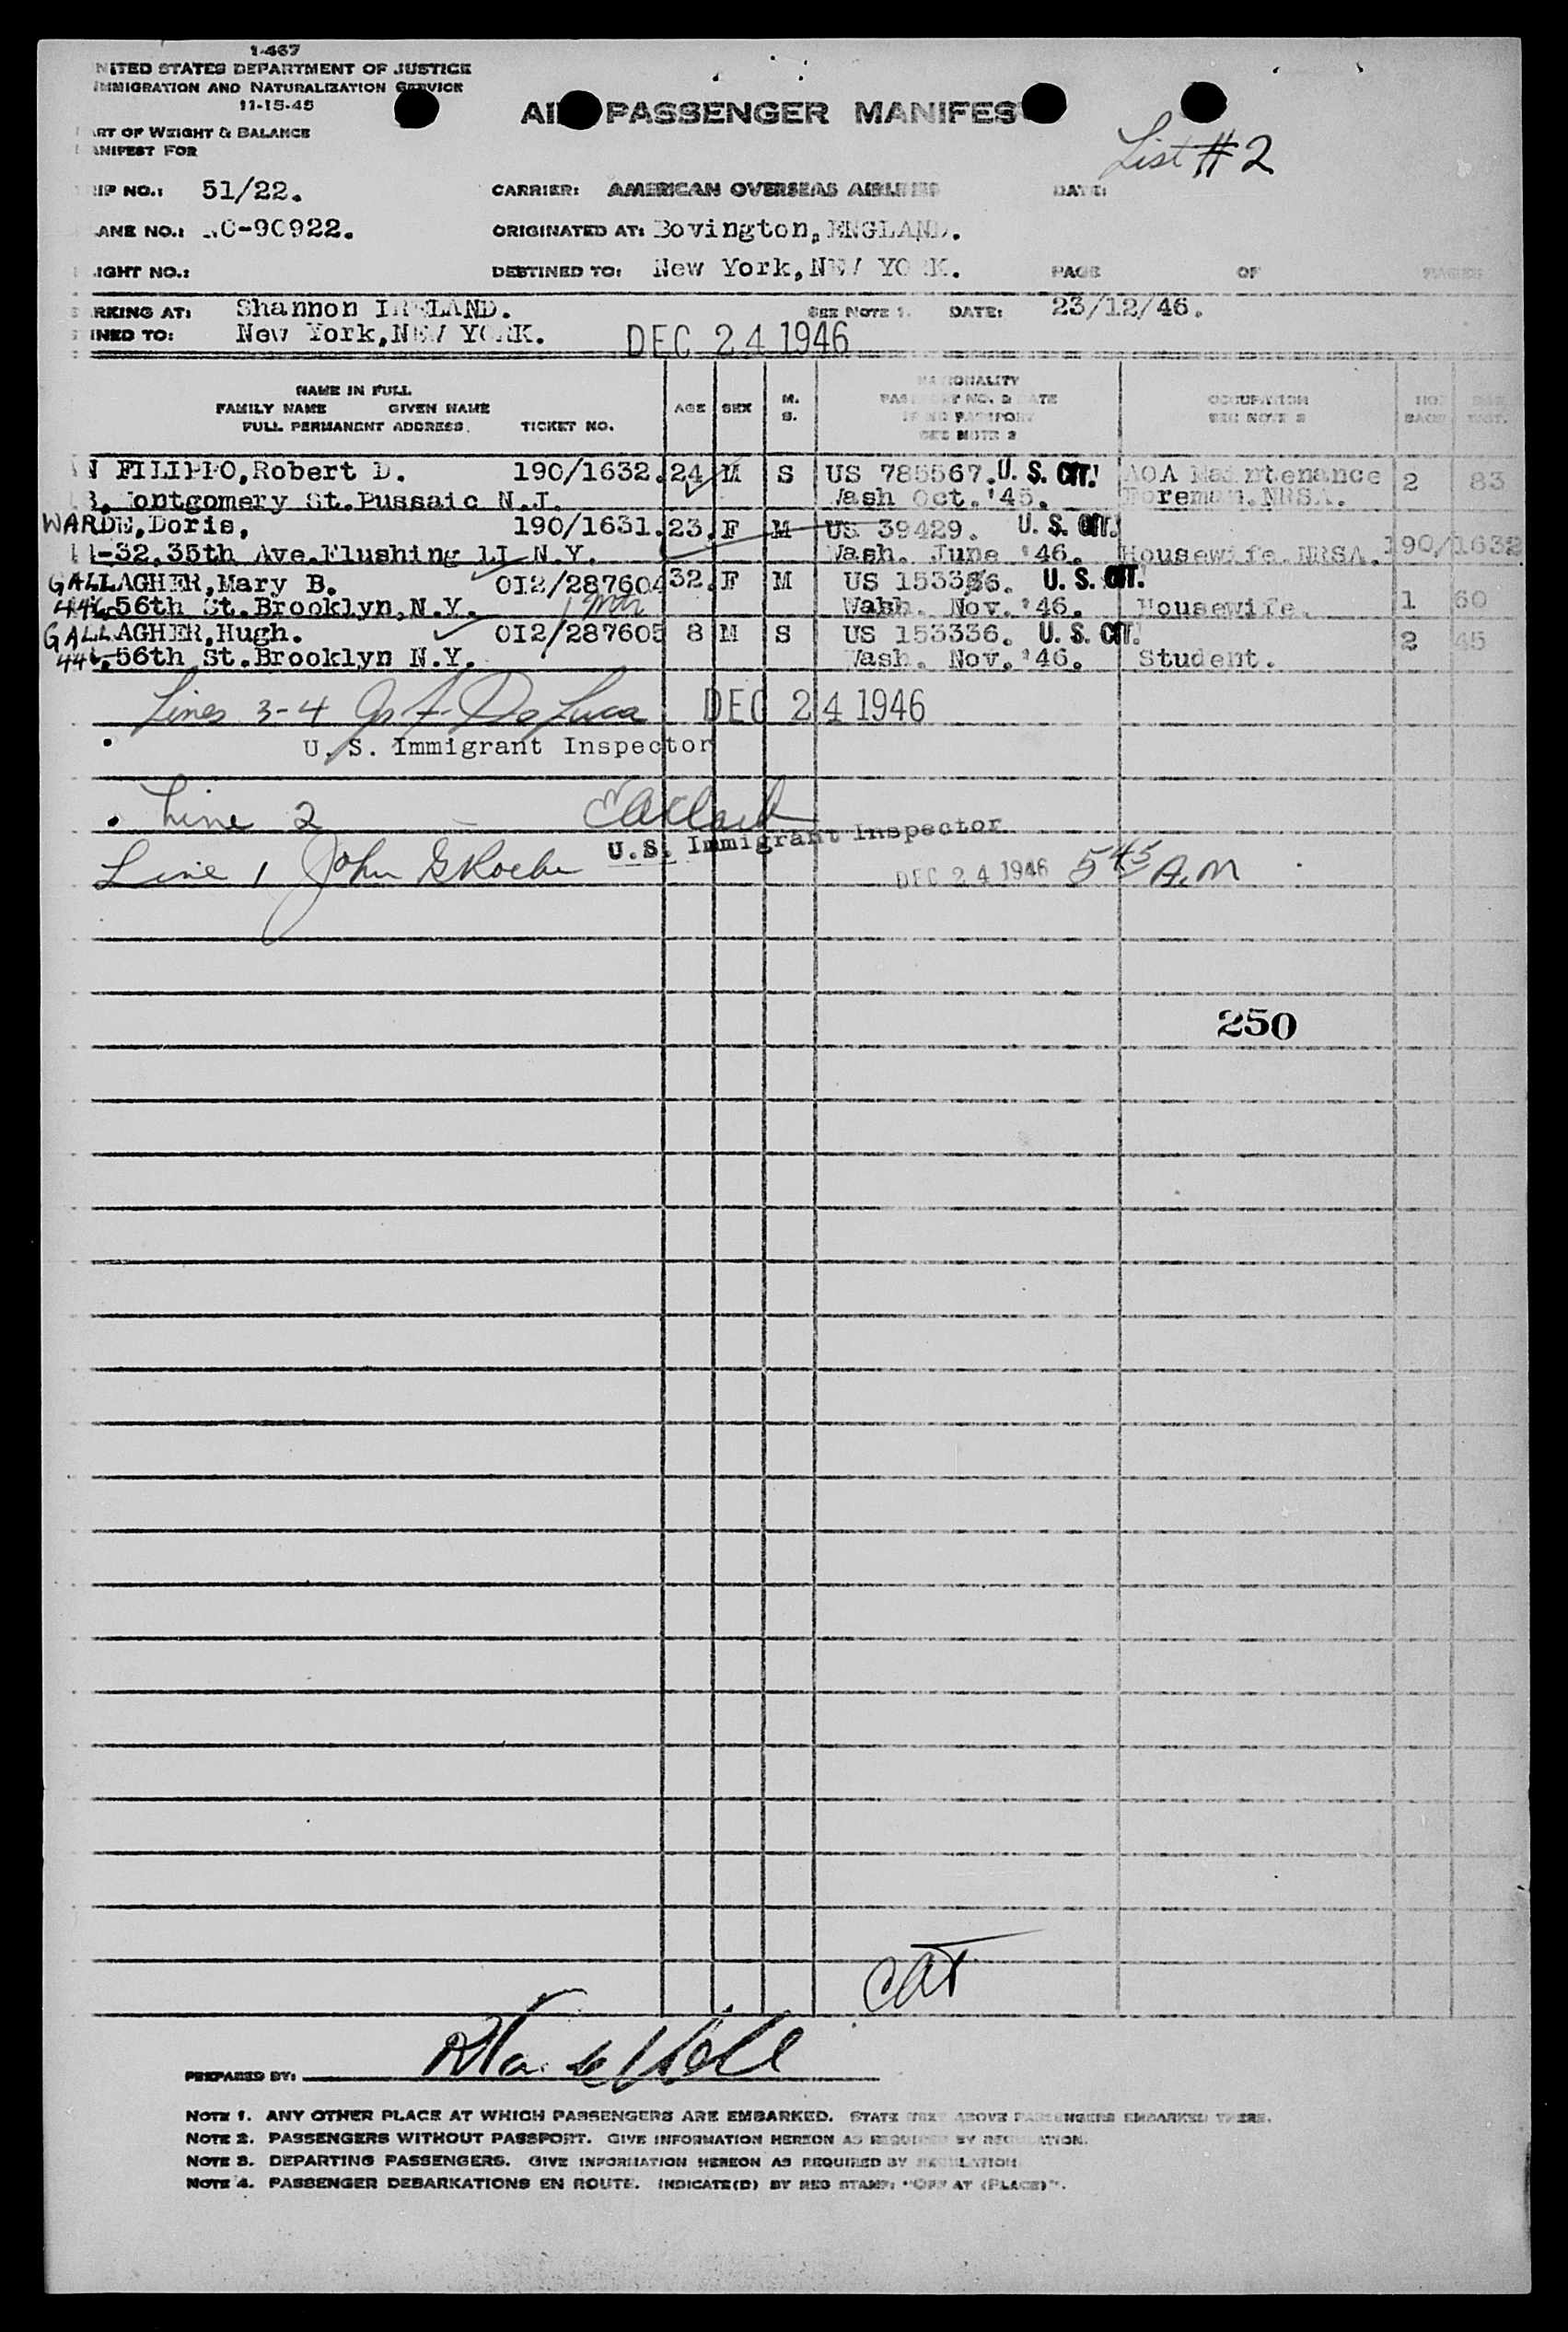 1-467
NITED STATES DEPARTMENT OF JUSTICE
IMMIGRATION AND NATURALIZATION SERVICE
11-15-45
AI PASSENGER MANIFES
ART OF WEIGHT & BALANCE
ANIFEST FOR
List #2
RIP NO.: 51/22. CARRIER: AMERICAN OVERSEAS AIRLINES DATE:
ANE NO.: C-90922. ORIGINATED AT: Bovington, ENGLAND.
IGHT NO.: DESTINED TO: New York, NEW YORK. PAGE OF PAGES
RKING AT: Shannon IRELAND. SEE NOTE 1. DATE: 23/12/46.
INED TO: New York, NEW YORK. DEC 24 1946
NAME IN FULL
FAMILY NAME GIVEN NAME
FULL PERMANENT ADDRESS. TICKET NO. AGE SEX M. S. NATIONALITY PASSPORT NO. & DATE IF NO PASSPORT SEE NOTE 2 OCCUPATION SEE NOTE 3 NO. BAGS
N FILIPPO, Robert D. 190/1632. 24 M S US 785567. U. S. CIT. AOA Maintenance 2 83
ontgomery St. Pussaic N.J. Wash Oct. '45. Foreman. NRSA.
WARDE, Doris, 190/1631. 23. F M US 39429. U. S. CIT.
-32, 35th Ave. Flushing LI N.Y. Wash. June '46. Housewife. NRSA. 190/1632
GALLAGHER, Mary B. 012/287604 32. F M US 153336. U. S. CIT.
446. 56th St. Brooklyn, N.Y. Wash. Nov. '46. Housewife. 1 60
GALLAGHER, Hugh. 012/287605 8 M S US 153336. U. S. CIT. 2 45
446. 56th St. Brooklyn N.Y. Wash. Nov. '46. Student.
Lines 3-4 De Luca DEC 24 1946
U. S. Immigrant Inspector
Line 2
U.S. Immigrant Inspector
Line 1 John DEC 24 1946 5 45 A.M
250
PREPARED BY:
NOTE 1. ANY OTHER PLACE AT WHICH PASSENGERS ARE EMBARKED. STATE NEXT ABOVE PASSENGERS EMBARKED THERE.
NOTE 2. PASSENGERS WITHOUT PASSPORT. GIVE INFORMATION HEREON AS REQUIRED BY REGULATION.
NOTE 3. DEPARTING PASSENGERS. GIVE INFORMATION HEREON AS REQUIRED BY REGULATION
NOTE 4. PASSENGER DEBARKATIONS EN ROUTE. INDICATE(D) BY RED STAMP: "OFF AT (PLACE)".